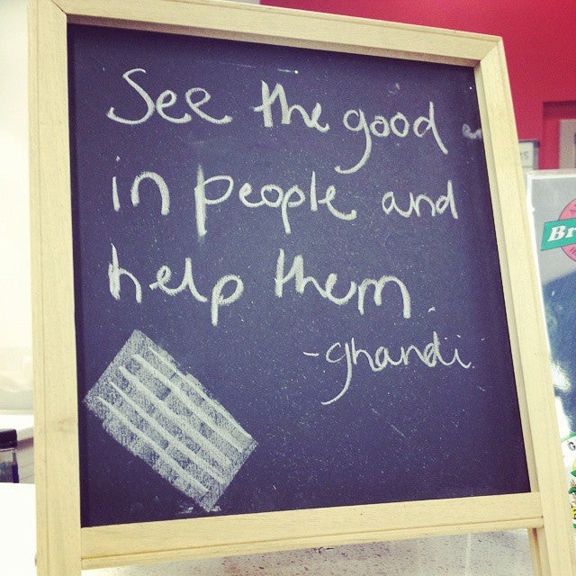 See the good
in people and
help them
-ghandi
Br